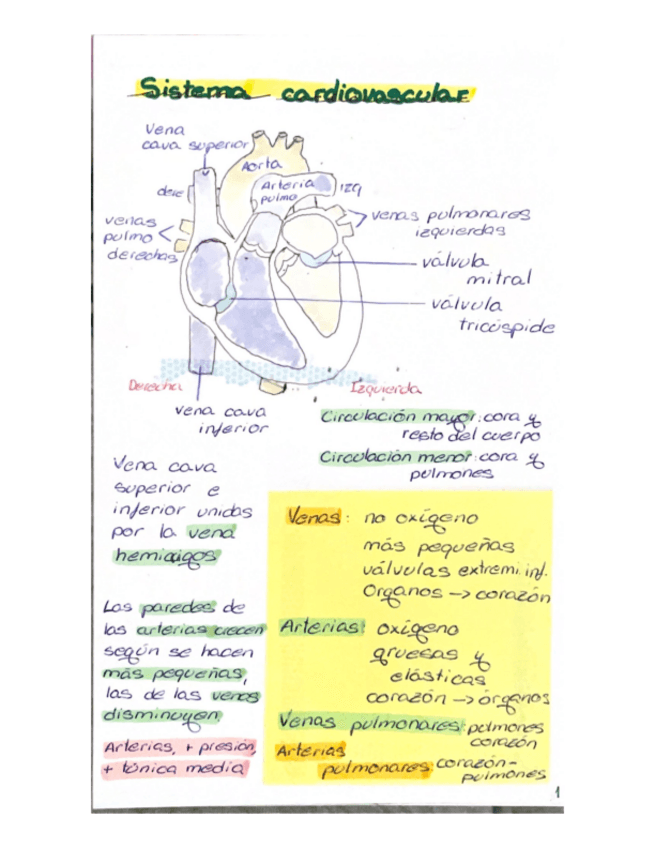 Sistema cardiovascular
Vena
cava superior
Aorta
Arteria
pulmo
izq
dere
venas
pulmo
derechas
venas pulmonares
izquierdas
válvula
mitral
válvula
tricúspide
Derecha
Izquierda
vena cava
inferior
Circulación mayor: cora y
resto del cuerpo
Circulación menor: cora y
pulmones
Vena cava
superior e
inferior unidas
por la vena
hemiaigos
Las paredes de
las arterias crecen
según se hacen
más pequeñas,
las de las venas
disminuyen
Arterias, + presión,
+ túnica media
Venas: no oxígeno
más pequeñas
válvulas extremi. inf.
Organos → corazón
Arterias: oxígeno
gruesas y
elásticas
corazón → órganos
Venas pulmonares: pulmones
corazón
Arterias
pulmonares: corazón-
pulmones
1